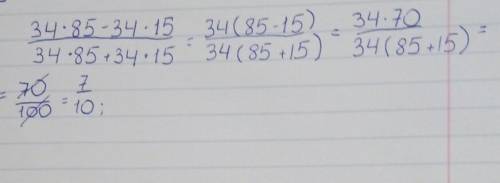 34·85-34·15/34·85+34·15 = 34(85-15)/34(85+15) = 34·70/34(85+15) =
= 70/100 = 7/10;